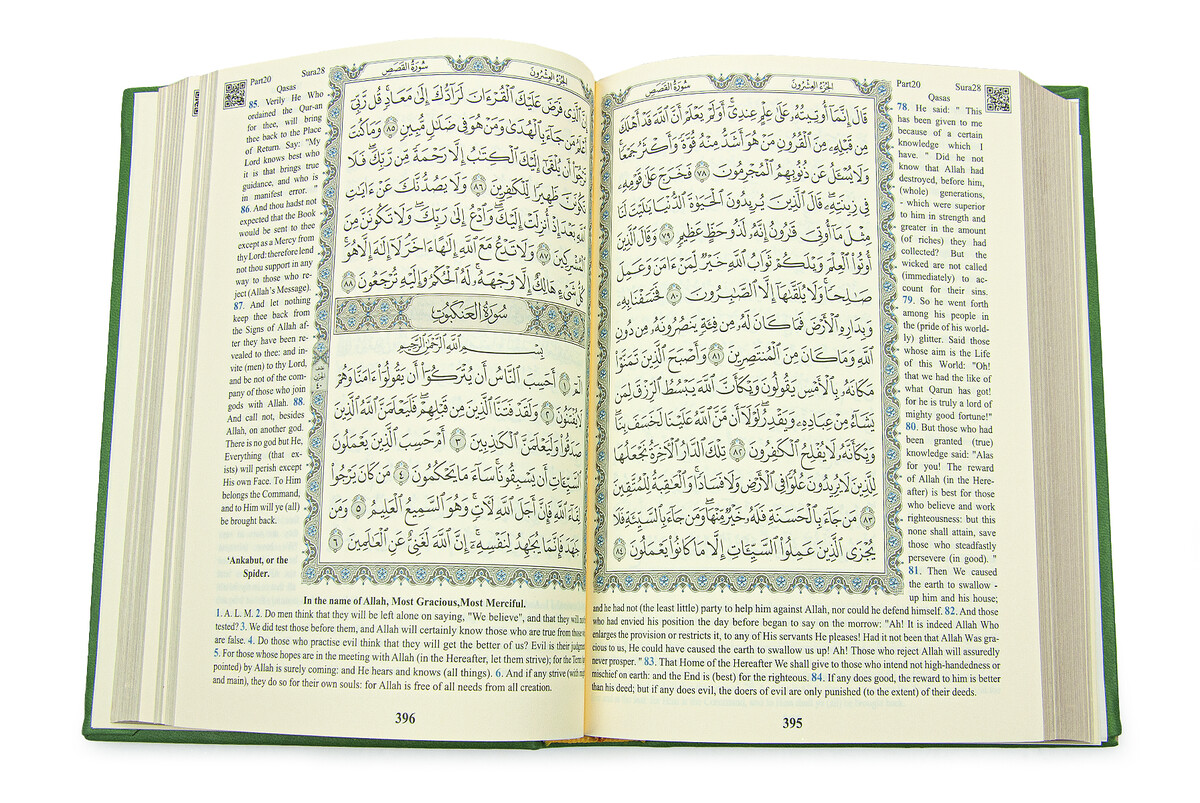 الجزء العشرون
سورة القصص
Part20 Sura28
Qasas
قَالَ إِنَّمَآ أُوتِيتُهُۥ عَلَىٰ عِلْمٍ عِندِىٓ أَوَلَمْ يَعْلَمْ أَنَّ ٱللَّهَ قَدْ أَهْلَكَ
مِن قَبْلِهِۦ مِنَ ٱلْقُرُونِ مَنْ هُوَ أَشَدُّ مِنْهُ قُوَّةً وَأَكْثَرُ جَمْعًا
وَلَا يُسْـَٔلُ عَن ذُنُوبِهِمُ ٱلْمُجْرِمُونَ ٧٨ فَخَرَجَ عَلَىٰ قَوْمِهِۦ
فِى زِينَتِهِۦ قَالَ ٱلَّذِينَ يُرِيدُونَ ٱلْحَيَوٰةَ ٱلدُّنْيَا يَٰلَيْتَ لَنَا
مِثْلَ مَآ أُوتِىَ قَٰرُونُ إِنَّهُۥ لَذُو حَظٍّ عَظِيمٍ ٧٩ وَقَالَ ٱلَّذِينَ
أُوتُوا۟ ٱلْعِلْمَ وَيْلَكُمْ ثَوَابُ ٱللَّهِ خَيْرٌ لِّمَنْ ءَامَنَ وَعَمِلَ
صَٰلِحًا وَلَا يُلَقَّىٰهَآ إِلَّا ٱلصَّٰبِرُونَ ٨٠ فَخَسَفْنَا بِهِۦ
وَبِدَارِهِ ٱلْأَرْضَ فَمَا كَانَ لَهُۥ مِن فِئَةٍ يَنصُرُونَهُۥ مِن دُونِ
ٱللَّهِ وَمَا كَانَ مِنَ ٱلْمُنتَصِرِينَ ٨١ وَأَصْبَحَ ٱلَّذِينَ تَمَنَّوْا۟
مَكَانَهُۥ بِٱلْأَمْسِ يَقُولُونَ وَيْكَأَنَّ ٱللَّهَ يَبْسُطُ ٱلرِّزْقَ لِمَن
يَشَآءُ مِنْ عِبَادِهِۦ وَيَقْدِرُ لَوْلَآ أَن مَّنَّ ٱللَّهُ عَلَيْنَا لَخَسَفَ بِنَا
وَيْكَأَنَّهُۥ لَا يُفْلِحُ ٱلْكَٰفِرُونَ ٨٢ تِلْكَ ٱلدَّارُ ٱلْأَخِرَةُ نَجْعَلُهَا
لِلَّذِينَ لَا يُرِيدُونَ عُلُوًّا فِى ٱلْأَرْضِ وَلَا فَسَادًا وَٱلْعَٰقِبَةُ لِلْمُتَّقِينَ
٨٣ مَن جَآءَ بِٱلْحَسَنَةِ فَلَهُۥ خَيْرٌ مِّنْهَا وَمَن جَآءَ بِٱلسَّيِّئَةِ فَلَا
يُجْزَى ٱلَّذِينَ عَمِلُوا۟ ٱلسَّيِّـَٔاتِ إِلَّا مَا كَانُوا۟ يَعْمَلُونَ ٨٤
78. He said: " This
has been given to me
because of a certain
knowledge which I
have. " Did he not
know that Allah had
destroyed, before him,
(whole) generations,
- which were superior
to him in strength and
greater in the amount
(of riches) they had
collected? But the
wicked are not called
(immediately) to ac-
count for their sins.
79. So he went forth
among his people in
the (pride of his world-
ly) glitter. Said those
whose aim is the Life
of this World: "Oh!
that we had the like of
what Qarun has got!
for he is truly a lord of
mighty good fortune!"
80. But those who had
been granted (true)
knowledge said: "Alas
for you! The reward
of Allah (in the Here-
after) is best for those
who believe and work
righteousness: but this
none shall attain, save
those who steadfastly
persevere (in good). "
81. Then We caused
the earth to swallow -
up him and his house;
and he had not (the least little) party to help him against Allah, nor could he defend himself. 82. And those
who had envied his position the day before began to say on the morrow: "Ah! It is indeed Allah Who
enlarges the provision or restricts it, to any of His servants He pleases! Had it not been that Allah Was gra-
cious to us, He could have caused the earth to swallow us up! Ah! Those who reject Allah will assuredly
never prosper. " 83. That Home of the Hereafter We shall give to those who intend not high-handedness or
mischief on earth: and the End is (best) for the righteous. 84. If any does good, the reward to him is better
than his deed; but if any does evil, the doers of evil are only punished (to the extent) of their deeds.
395
الجزء العشرون
سورة القصص
Part20 Sura28
Qasas
ٱلَّذِى فَرَضَ عَلَيْكَ ٱلْقُرْءَانَ لَرَآدُّكَ إِلَىٰ مَعَادٍ قُل رَّبِّىٓ
مَن جَآءَ بِٱلْهُدَىٰ وَمَنْ هُوَ فِى ضَلَٰلٍ مُّبِينٍ ٨٥ وَمَا كُنتَ
أَن يُلْقَىٰٓ إِلَيْكَ ٱلْكِتَٰبُ إِلَّا رَحْمَةً مِّن رَّبِّكَ فَلَا
تَكُونَنَّ ظَهِيرًا لِّلْكَٰفِرِينَ ٨٦ وَلَا يَصُدُّنَّكَ عَنْ ءَايَٰتِ
ٱللَّهِ بَعْدَ إِذْ أُنزِلَتْ إِلَيْكَ وَٱدْعُ إِلَىٰ رَبِّكَ وَلَا تَكُونَنَّ مِنَ
ٱلْمُشْرِكِينَ ٨٧ وَلَا تَدْعُ مَعَ ٱللَّهِ إِلَٰهًا ءَاخَرَ لَآ إِلَٰهَ إِلَّا هُوَ
كُلُّ شَىْءٍ هَالِكٌ إِلَّا وَجْهَهُۥ لَهُ ٱلْحُكْمُ وَإِلَيْهِ تُرْجَعُونَ ٨٨
سورة العنكبوت
بِسْمِ ٱللَّهِ ٱلرَّحْمَٰنِ ٱلرَّحِيمِ
الٓمٓ ١ أَحَسِبَ ٱلنَّاسُ أَن يُتْرَكُوٓا۟ أَن يَقُولُوٓا۟ ءَامَنَّا وَهُمْ
لَا يُفْتَنُونَ ٢ وَلَقَدْ فَتَنَّا ٱلَّذِينَ مِن قَبْلِهِمْ فَلَيَعْلَمَنَّ ٱللَّهُ ٱلَّذِينَ
صَدَقُوا۟ وَلَيَعْلَمَنَّ ٱلْكَٰذِبِينَ ٣ أَمْ حَسِبَ ٱلَّذِينَ يَعْمَلُونَ
ٱلسَّيِّـَٔاتِ أَن يَسْبِقُونَا سَآءَ مَا يَحْكُمُونَ ٤ مَن كَانَ يَرْجُوا۟
لِقَآءَ ٱللَّهِ فَإِنَّ أَجَلَ ٱللَّهِ لَأَتٍ وَهُوَ ٱلسَّمِيعُ ٱلْعَلِيمُ ٥ وَمَن
جَٰهَدَ فَإِنَّمَا يُجَٰهِدُ لِنَفْسِهِۦٓ إِنَّ ٱللَّهَ لَغَنِىٌّ عَنِ ٱلْعَٰلَمِينَ ٦
85. Verily He Who
ordained the Qur-an
for thee, will bring
thee back to the Place
of Return. Say: "My
Lord knows best who
it is that brings true
guidance, and who is
in manifest error. "
86. And thou hadst not
expected that the Book
would be sent to thee
except as a Mercy from
thy Lord: therefore lend
not thou support in any
way to those who re-
ject (Allah's Message).
87. And let nothing
keep thee back from
the Signs of Allah af-
ter they have been re-
vealed to thee: and in-
vite (men) to thy Lord,
and be not of the com-
pany of those who join
gods with Allah. 88.
And call not, besides
Allah, on another god.
There is no god but He,
Everything (that ex-
ists) will perish except
His own Face. To Him
belongs the Command,
and to Him will ye (all)
be brought back.
'Ankabut, or the
Spider.
In the name of Allah, Most Gracious,Most Merciful.
1. A. L. M. 2. Do men think that they will be left alone on saying, "We believe", and that they will not
tested? 3. We did test those before them, and Allah will certainly know those who are true from those
are false. 4. Do those who practise evil think that they will get the better of us? Evil is their
5. For those whose hopes are in the meeting with Allah (in the Hereafter, let them strive); for the
pointed) by Allah is surely coming: and He hears and knows (all things). 6. And if any strive (with
and main), they do so for their own souls: for Allah is free of all needs from all creation.
396